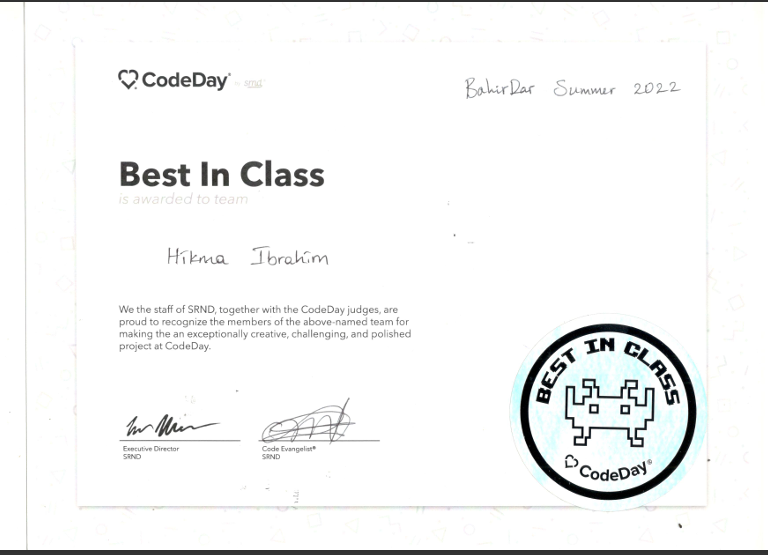 CodeDay® by srnd
BahirDar Summer 2022
Best In Class
is awarded to team
Hikma Ibrahim
We the staff of SRND, together with the CodeDay judges, are
proud to recognize the members of the above-named team for
making the an exceptionally creative, challenging, and polished
project at CodeDay.
Executive Director
SRND
Code Evangelist®
SRND
BEST IN CLASS
CodeDay®